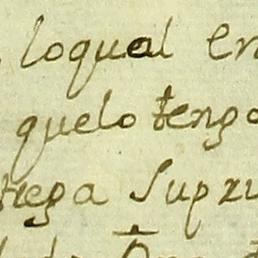 loqual en
quelo tengo
rega Supzu